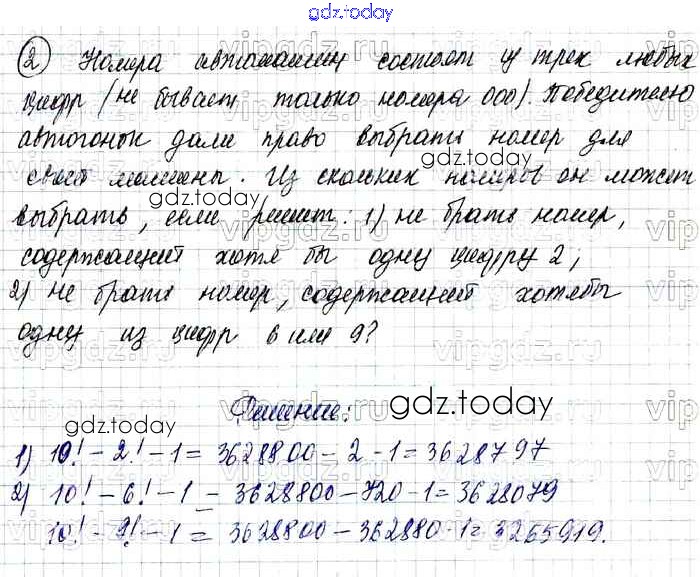 gdz.today
② Номера автомашин состоят из трех любых
цифр (не бывает только номера 000). Победителю
автогонок дали право выбрать номер для
gdz.today
своей машины. Из скольких номеров он может
выбрать, если решит: 1) не брать номер,
содержащий хотя бы одну цифру 2;
2) не брать номер, содержащий хотябы
одну из цифр 6 или 9?
Решение:
gdz.today
gdz.today
1) 10! - 2! - 1 = 3628800 - 2 - 1 = 3628797
2) 10! - 6! - 1 = 3628800 - 720 - 1 = 3628079
10! - 9! - 1 = 3628800 - 362880 - 1 = 3265919.